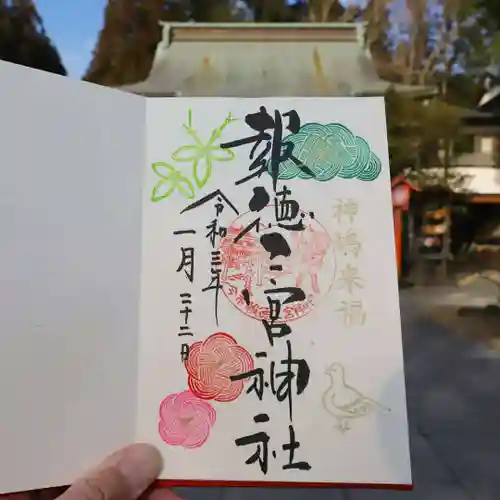 報徳二宮神社
神鳩来福
令和三年
一月二十二日